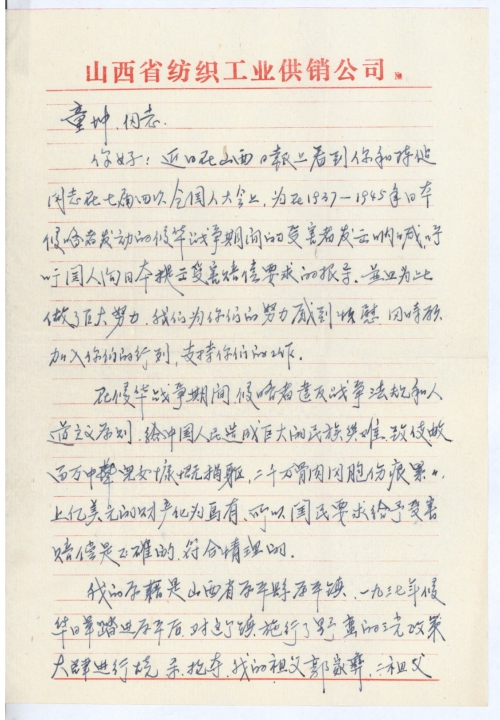 山西省纺织工业供销公司
童增同志.
你好！近日在山西日报上看到你和陈健
同志在七届四次全国人大会上,为在1937—1945年日本
侵略者发动的侵华战争期间的受害者发出呐喊,呼
吁国人向日本提出受害赔偿要求的报导.并且为此
做了巨大努力,我们为你们的努力感到欣慰.同时愿
加入你们的行列,支持你们的工作.
在侵华战争期间,侵略者违反战争法规和人
道主义原则.给中国人民造成巨大的民族灾难.致使数
百万中华儿女慷慨捐躯,二千万骨肉同胞伤痕累々.
上亿美元的财产化为乌有.所以国民要求给予受害
赔偿是正确的.符合情理的.
我的原籍是山西省原平县原平镇.一九三七年侵
华日军踏进原平后.对这个镇施行了野蛮的三光政策
大肆进行烧.杀.抢夺.我的祖父郭
二祖父